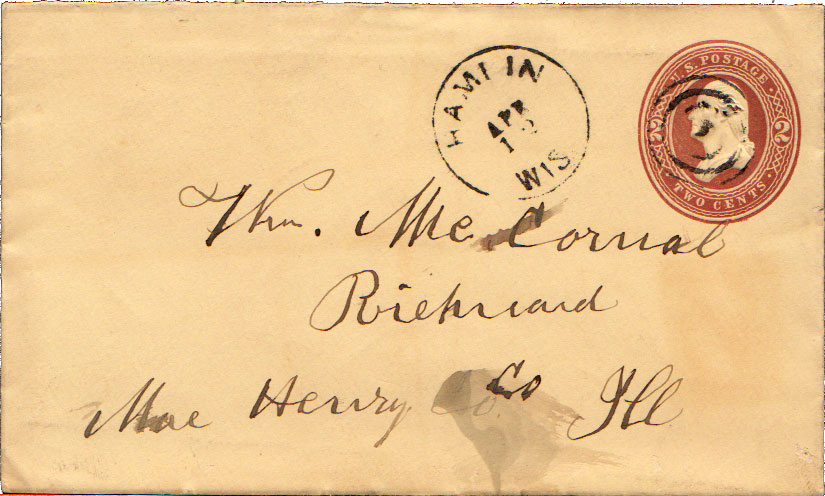 HAMLIN
APR
WIS
U.S. POSTAGE
2 2
TWO CENTS
Wm. Mc Cornal
Richmond
Mac Henry Co. Co Ill